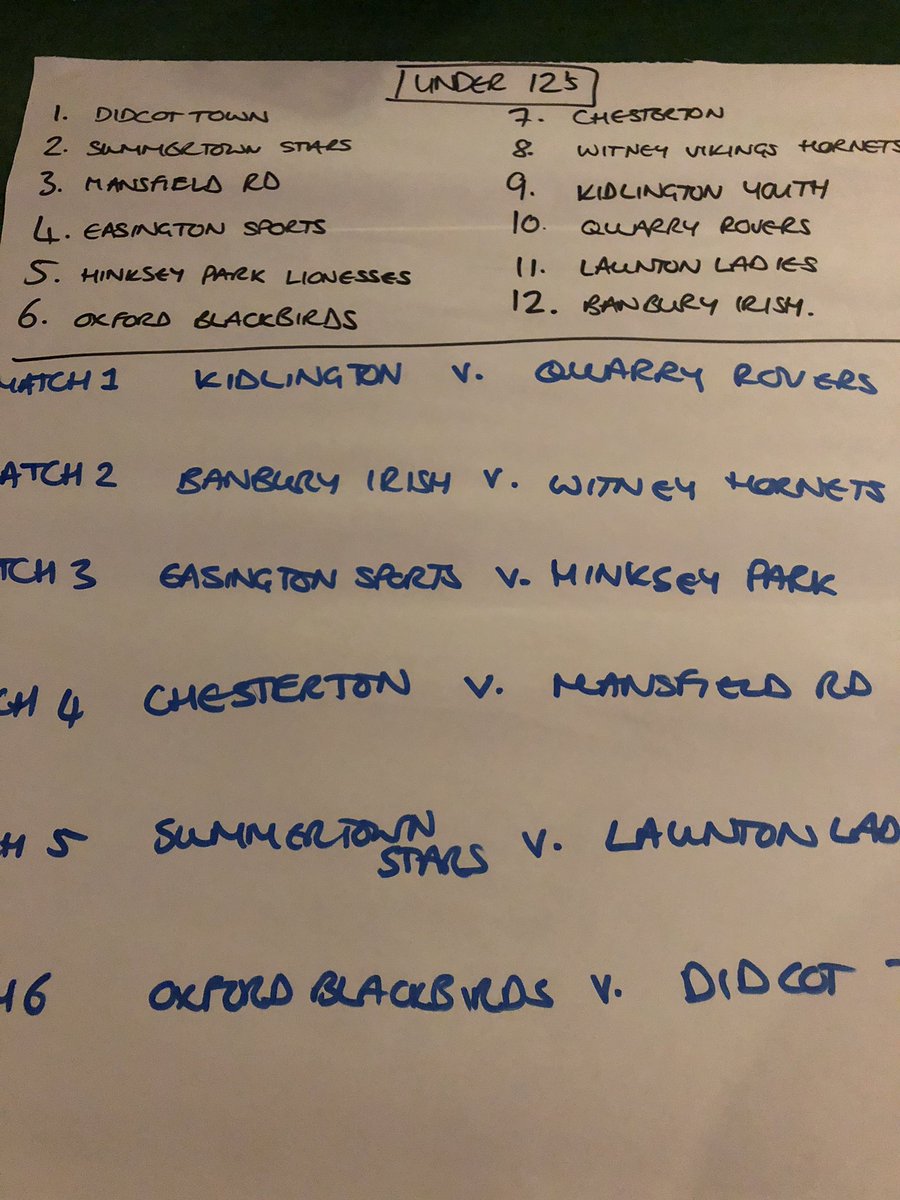 UNDER 12's
1. DIDCOT TOWN
2. SUMMERTOWN STARS
3. MANSFIELD RD
4. EASINGTON SPORTS
5. HINKSEY PARK LIONESSES
6. OXFORD BLACKBIRDS
7. CHESTERTON
8. WITNEY VIKINGS HORNETS
9. KIDLINGTON YOUTH
10. QUARRY ROVERS
11. LAUNTON LADIES
12. BANBURY IRISH.
MATCH 1 KIDLINGTON V. QUARRY ROVERS
ATCH 2 BANBURY IRISH V. WITNEY HORNETS
TCH 3 EASINGTON SPORTS V. HINKSEY PARK
CH 4 CHESTERTON V. MANSFIELD RD
H 5 SUMMERTOWN STARS V. LAUNTON LAD
H 6 OXFORD BLACKBIRDS V. DIDCOT